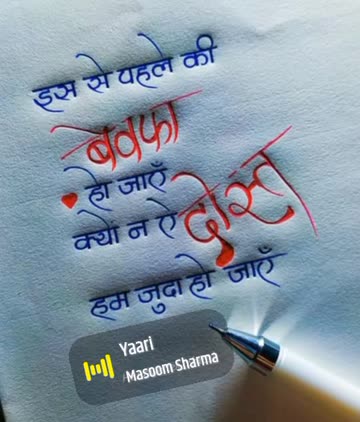 इस से पहले की
बेवफा
हो जाएँ
क्यों न ऐ दोस्त
हम जुदा हो जाएँ
Yaari
Masoom Sharma